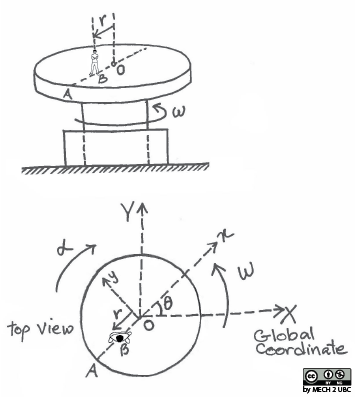 r
O
B
A
ω
Y
x
α
y
ω
r
θ
O
X
top view
B
Global
Coordinate
A
cc
BY NC
by MECH 2 UBC